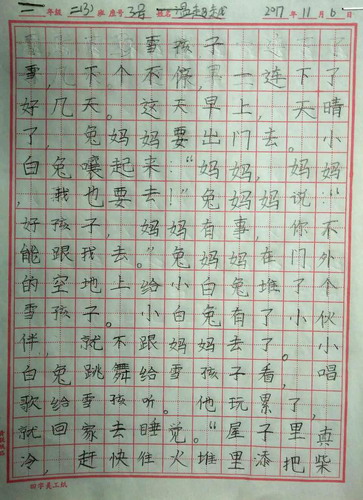 二年级 二(3)班 座号 3号 姓名 2017年11月6日
雪孩子
雪,下个不停,一连下了
好几天。这天早上,天晴
了,兔妈妈要出门去。小
白兔嚷起来:“妈妈,妈妈
,我也要去!”兔妈妈说:“
好孩子,妈妈有事,你不
能跟我去。”兔妈妈在门外
的空地上给小白兔堆了个
雪孩子。小白兔有了小伙
伴,就不跟妈妈去了。小
白兔跳舞给雪孩子看,唱
歌给雪孩听。他玩累了,
就回家去睡觉。“屋子里真
冷,赶快住火堆里添把柴